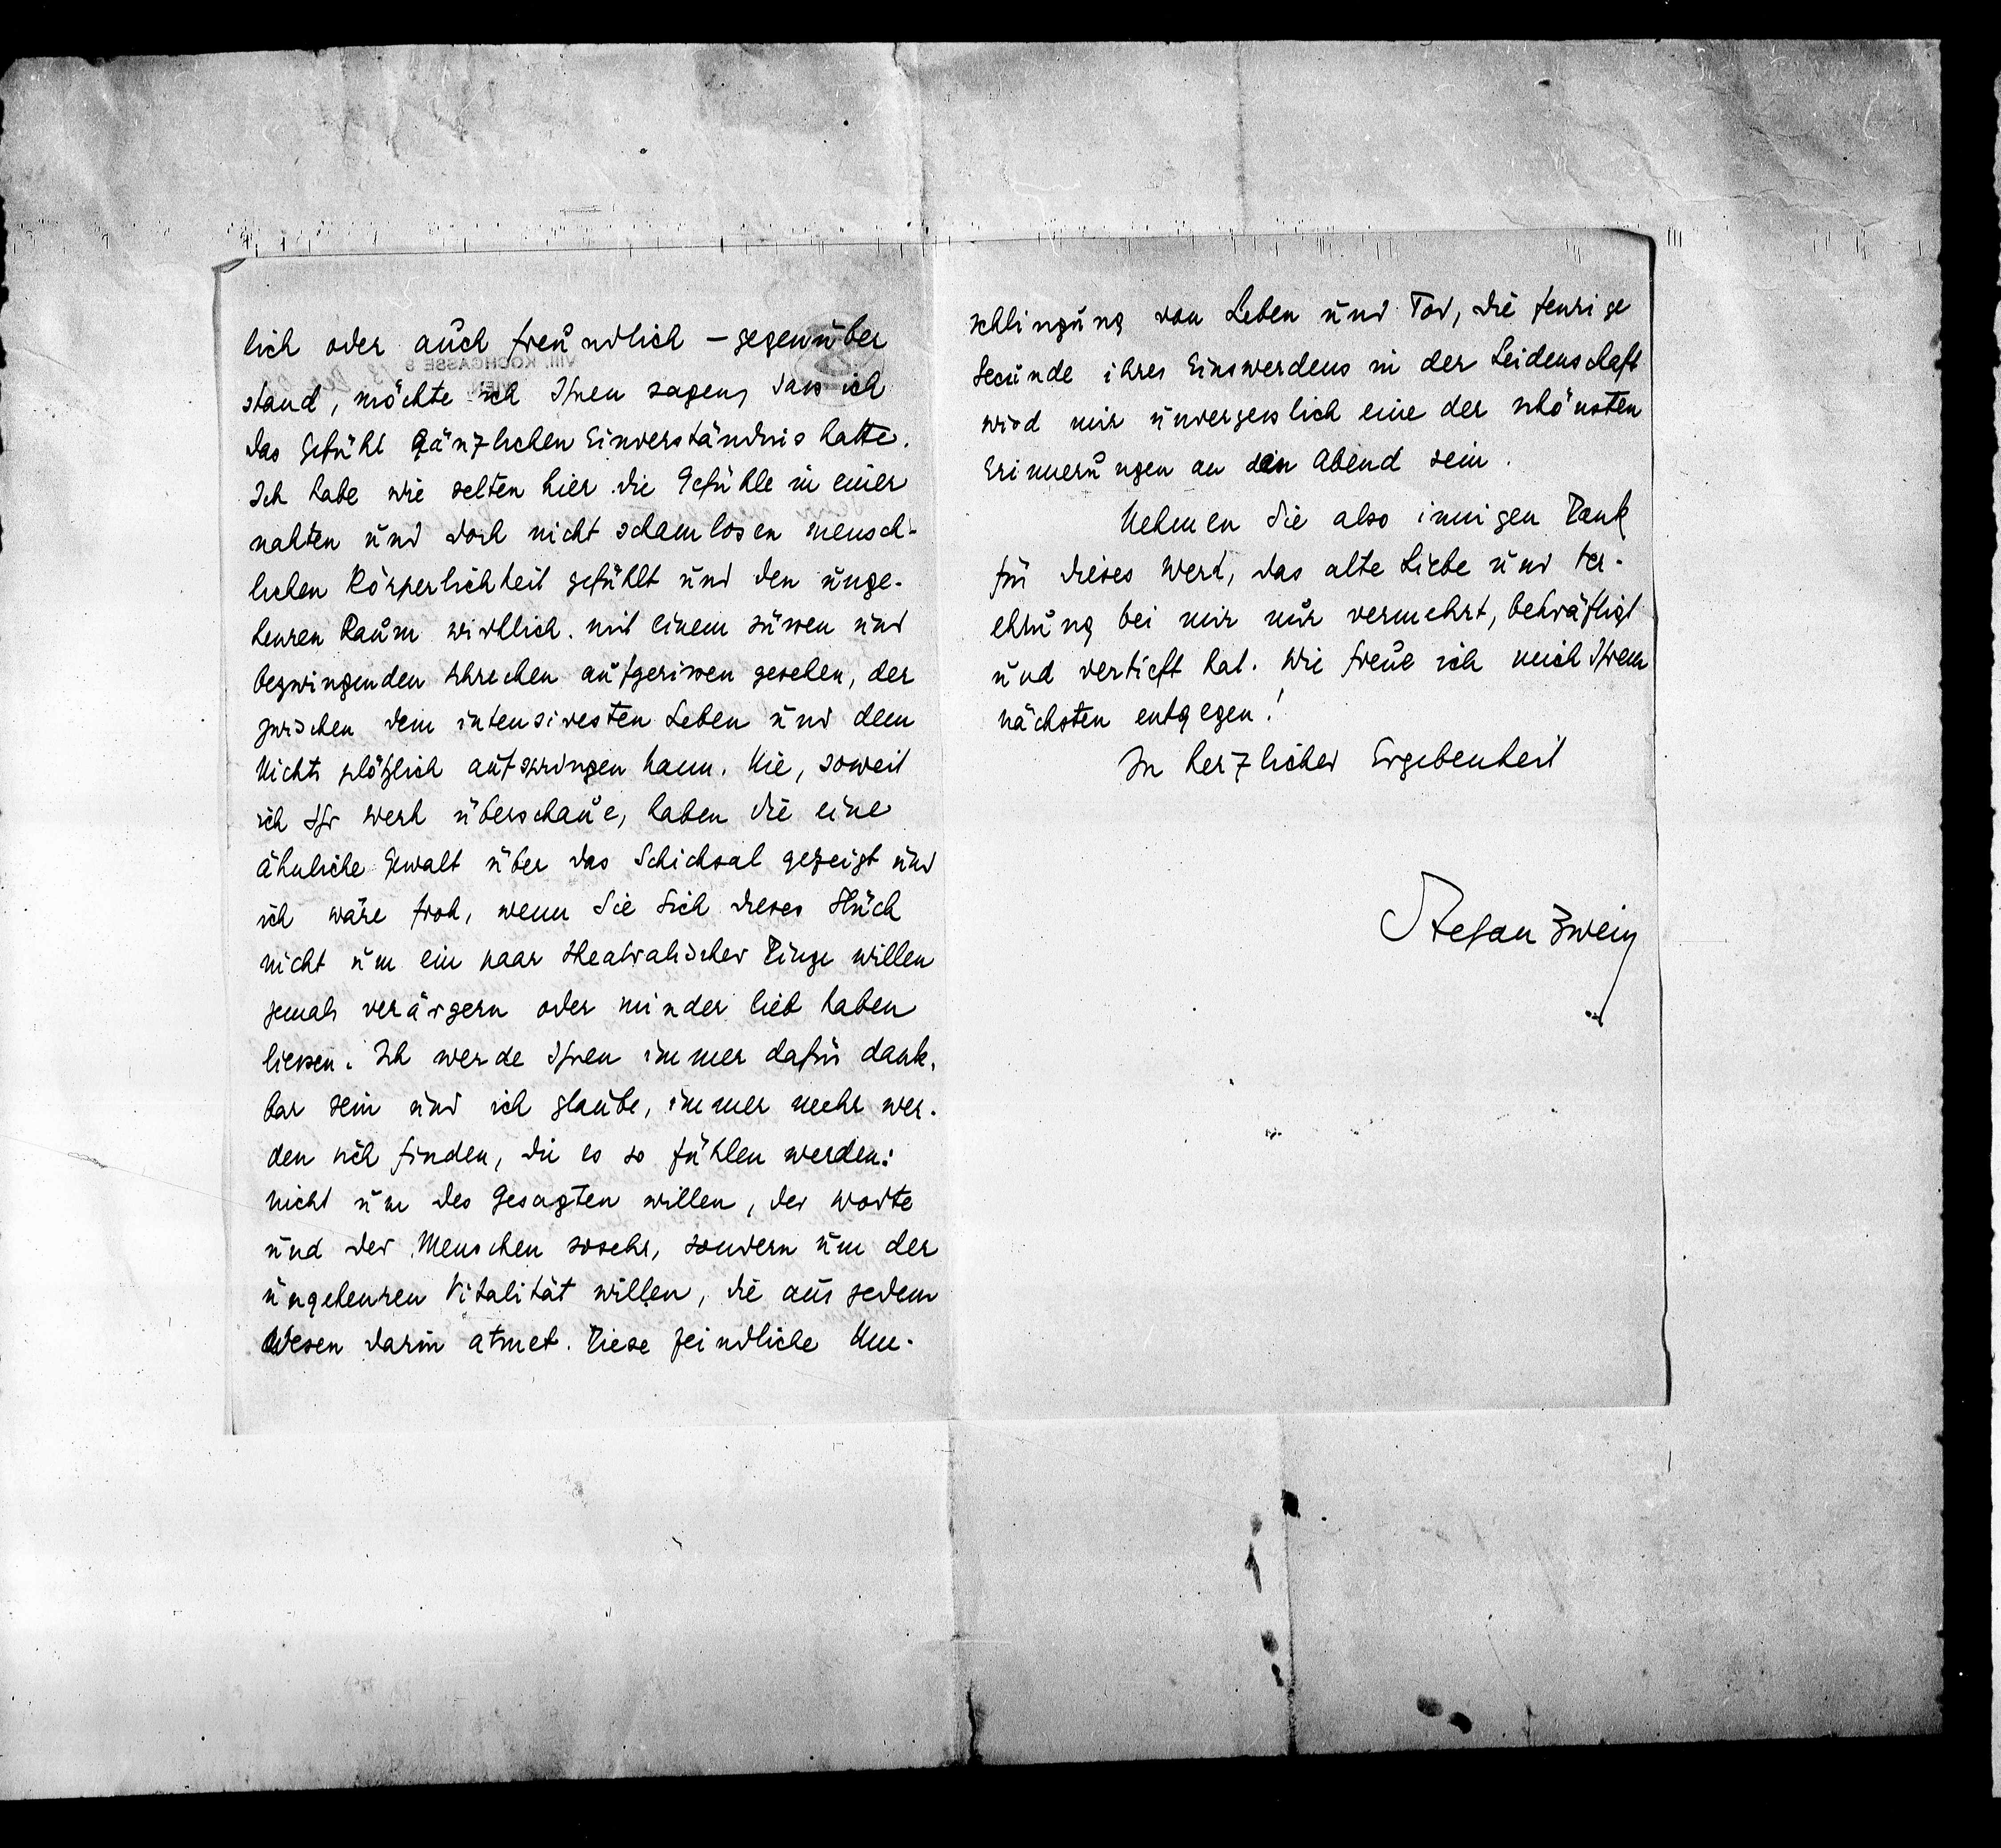 lich oder auch freundlich – gegenüber
stand, möchte ich Ihnen sagen, dass ich
das Gefühl gänzlichen Einverständnis hatte.
Ich habe wie selten hier die Gefühle in einer
nakten und doch nicht schamlosen mensch-
lichen Körperlichkeit gefühlt und den unge-
heuren Raum wirklich mit einem süssen und
bezwingenden Schrecken aufgerissen gesehen, der
zwischen dem intensivesten Leben und dem
Nichts plötzlich aufspringen kann. Nie, soweit
ich Ihr Werk überschaue, haben Sie eine
ähnliche Gewalt über das Schicksal gezeigt und
ich wäre froh, wenn Sie Sich dieses Stück
nicht um ein paar theatralischer Dinge willen
jemals verärgern oder minder lieb haben
liessen. Ich werde Ihnen immer dafür dank-
bar sein und ich glaube, immer mehr wer-
den sich finden, die es so fühlen werden:
nicht um des Gesagten willen, der Worte
und der Menschen sosehr, sondern um der
ungeheuren Vitalität willen, die aus jedem
Wesen darin atmet. Diese feindliche Um-
schlingung von Leben und Tod, die feurige
Secunde ihres Einswerdens in der Leidenschaft
wird mir unvergesslich eine der schönsten
Erinnerungen an den Abend sein.
Nehmen Sie also innigen Dank
für dieses Werk, das alte Liebe und Ver-
ehrung bei mir nur vermehrt, bekräftigt
und vertieft hat. Wie freue ich mich Ihrem
nächsten entgegen!
In herzlicher Ergebenheit
Stefan Zweig
VIII. KOCHGASSE 8
WIEN